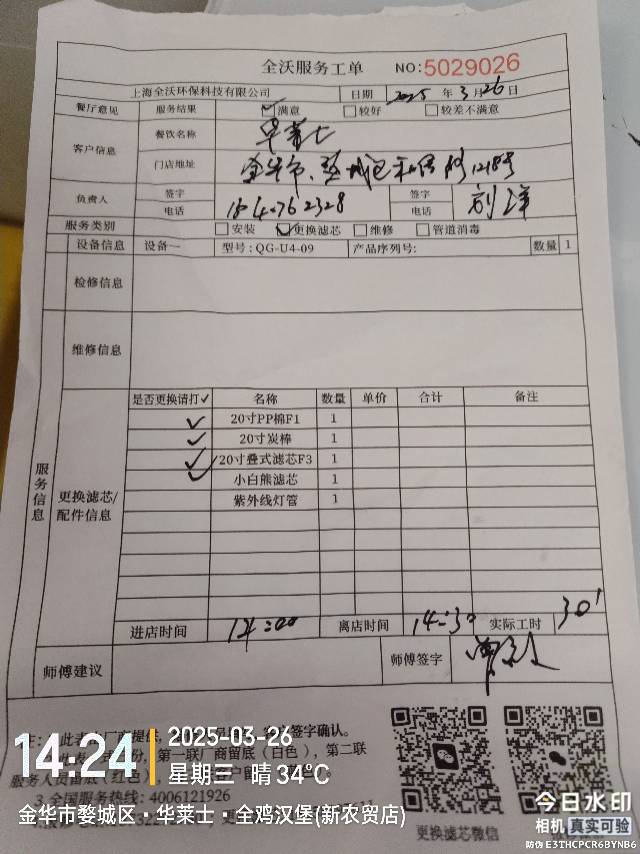 全沃服务工单 NO:5029026
上海全沃环保科技有限公司 日期 2025 年 3 月 26 日
餐厅意见 服务结果 满意 较好 较差不满意
客户信息 餐饮名称 华莱士
门店地址 金华市
负责人 签字 签字 刘洋
电话 电话
服务类别 安装 更换滤芯 维修 管道消毒
设备信息 设备一 型号:QG-U4-09 产品序列号: 数量 1
检修信息
维修信息
服务信息
更换滤芯/
配件信息
是否更换请打✓ 名称 数量 单价 合计 备注
✓ 20寸PP棉F1 1
✓ 20寸炭棒 1
✓ 20寸叠式滤芯F3 1
✓ 小白熊滤芯 1
紫外线灯管 1
进店时间 14:00 离店时间 14:30 实际工时 30'
师傅建议 师傅签字
签字确认。
第一联厂商留底(白色),第二联
3.全国服务热线:4006121926
更换滤芯微信
14:24
2025-03-26
星期三·晴 34℃
金华市婺城区·华莱士·全鸡汉堡(新农贸店)
今日水印
相机 真实可验
防伪 E3THCPCR6BYNB6